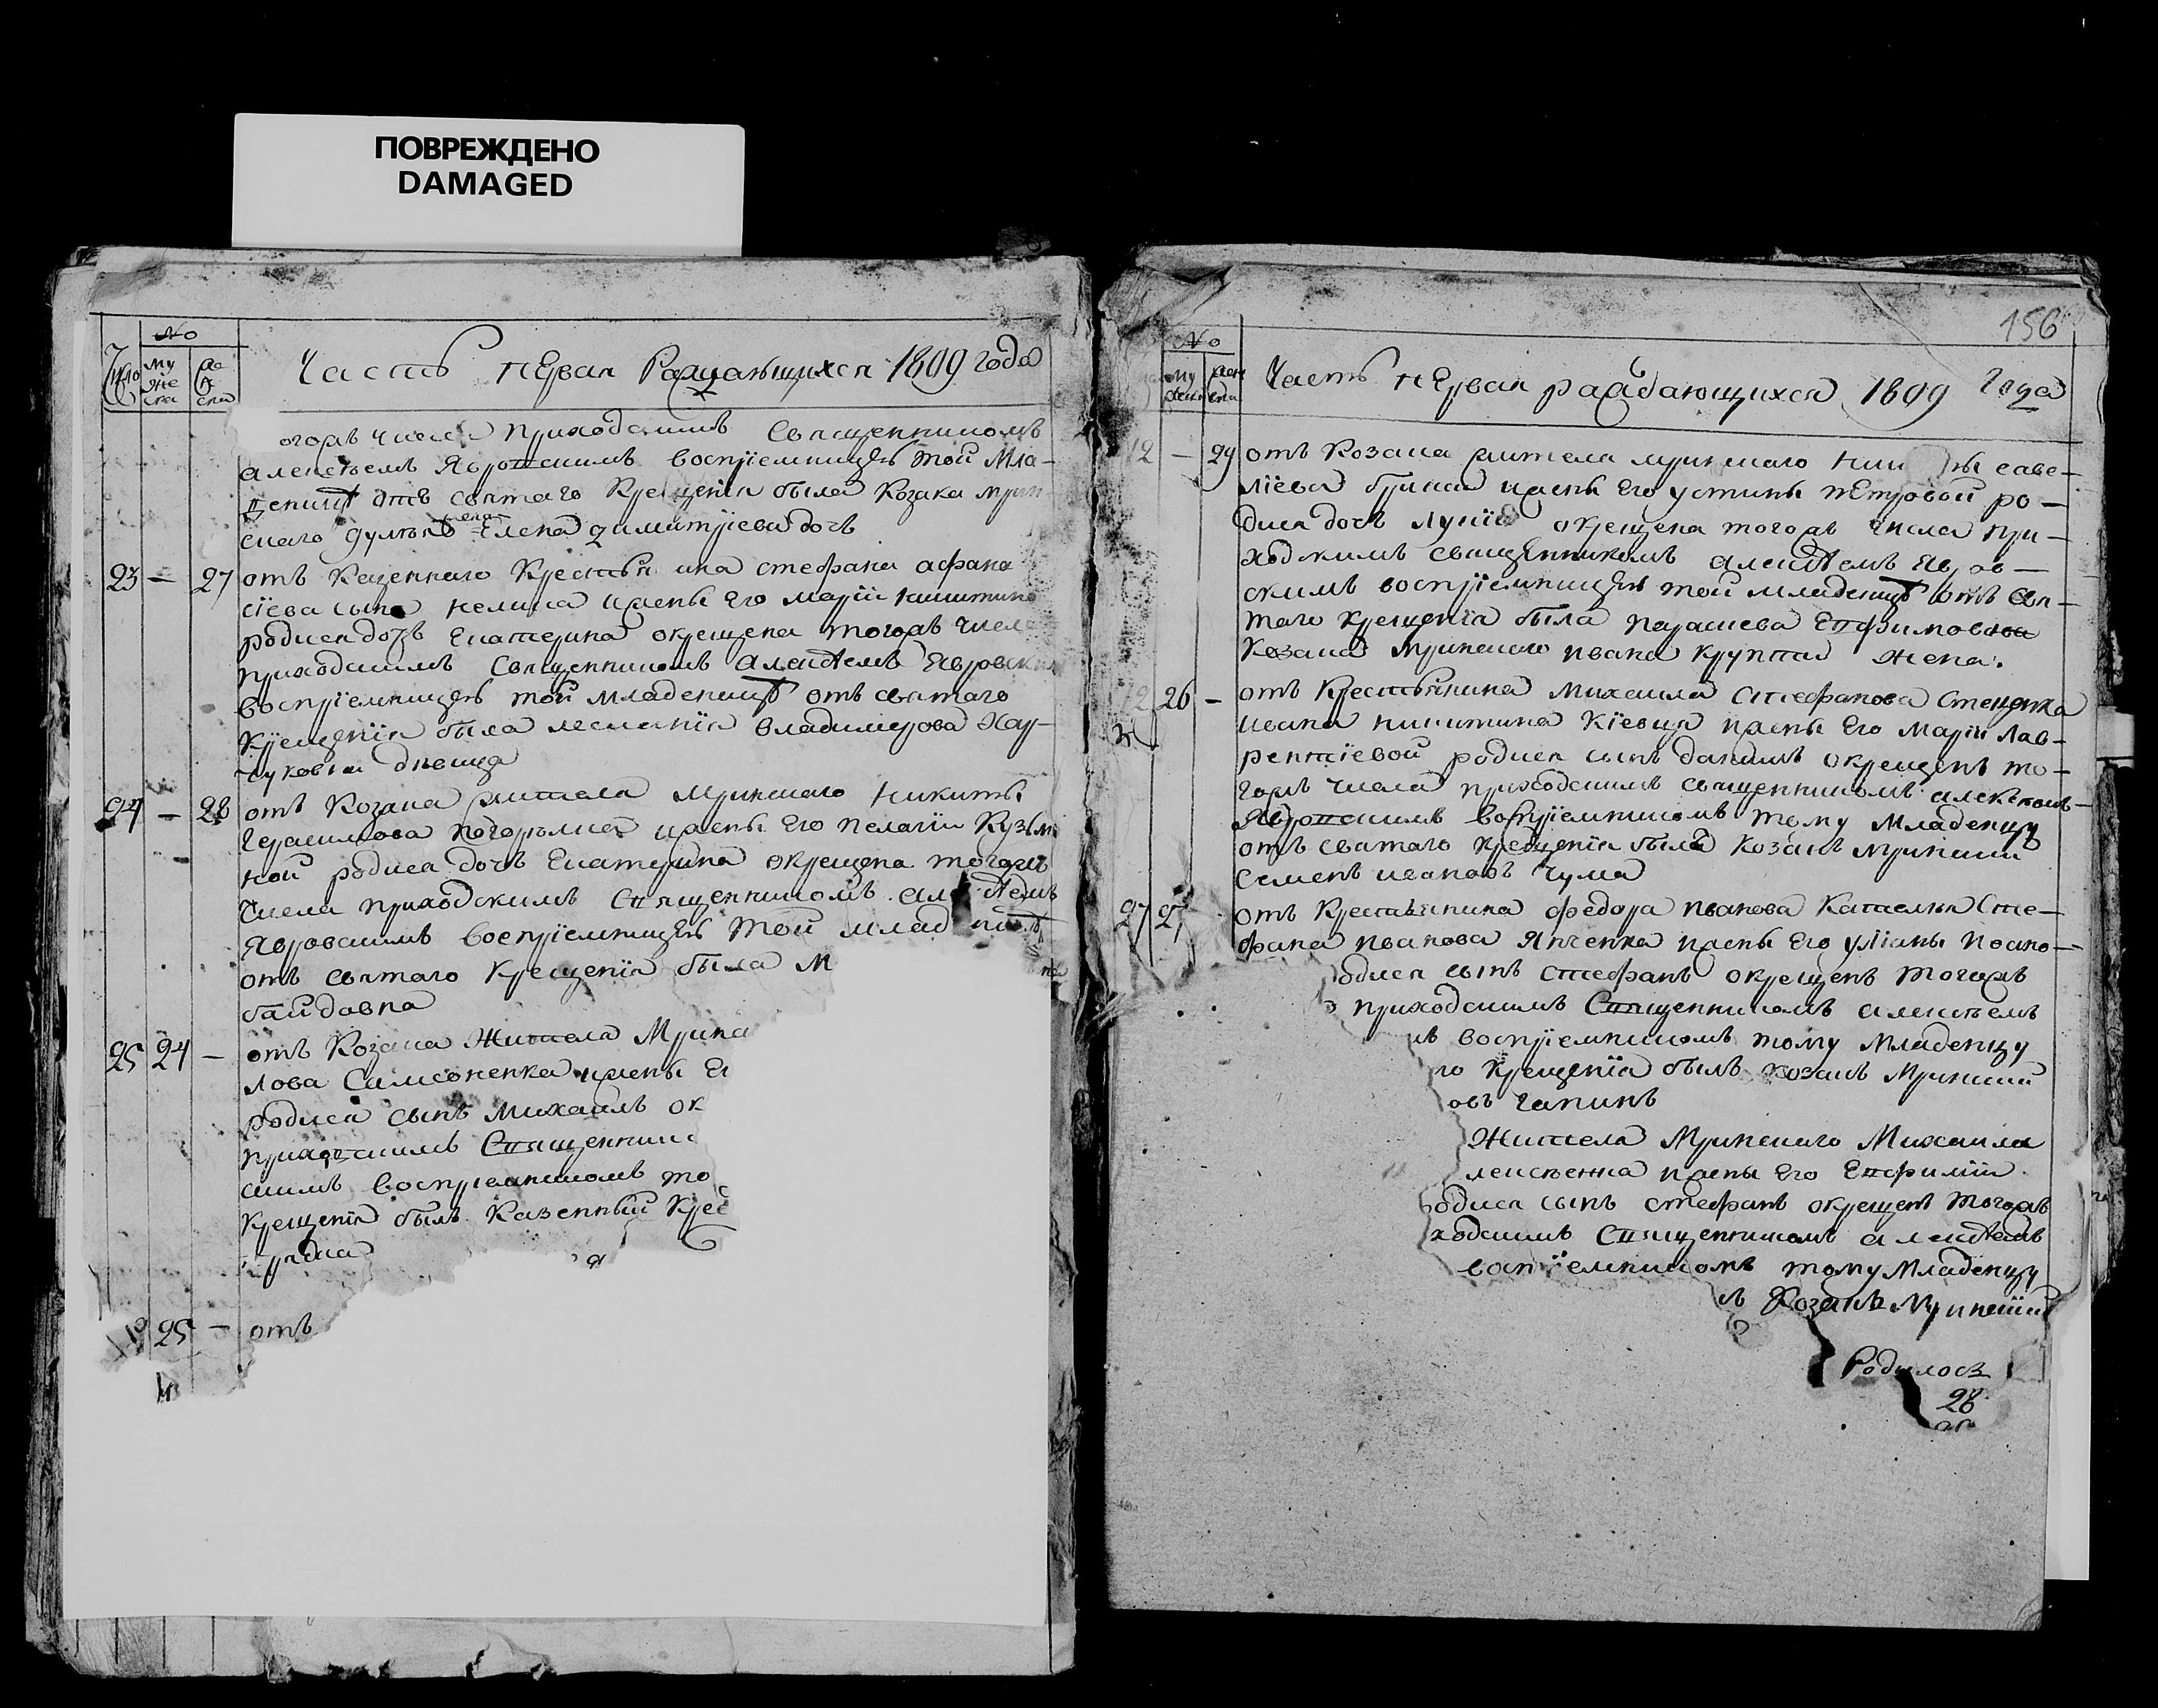 ПОВРЕЖДЕНО
DAMAGED
No
Число
му же ска
же н ска
Часть первая Раждающихся 1809 года
огожъ числа приходскимъ священникомъ
алексѣемъ Явровскимъ воспріемницею той Мла-
деницѣ отъ святаго Крещенія была Козака мрин
скаго жена Елена димитріева дочь
23 — 27 отъ Казеннаго Крестьянина стефана афана
сіева сына жены его маріи никитино
родися дочь Екатерина окрещена тогожъ числа
приходскимъ Священникомъ Алексѣемъ Явровским
воспріемницею той младеницѣ отъ святаго
Крещенія была меланія владимерова Хар-
чукова дѣвица
24 — 28 отъ Козака жителя Мринскаго Никиты
Герасимова жены его пелагіи Кузьми
ной родися дочь Екатерина окрещена тогожъ
числа приходскимъ Священникомъ але ѣемъ
Явровскимъ воспріемницею той млад ницѣ
отъ святаго Крещенія была М
байдовна
25 24 — отъ Козака Жителя Мринс
лова Самсоненка жены Ег
родися сынъ михаилъ ок
приходскимъ Священник
скимъ воспріемникомъ то
Крещенія былъ Казенный Крес
25 — отъ
156
No
му жеска
жен ска
Часть первая раждающихся 1809 Года
12 — 29 отъ Козака жителя мринскаго Ники ы саве-
ліева жены его устины петровой ро-
дися дочь окрещена тогожъ числа при-
ходскимъ священникомъ алексѣемъ Явров-
скимъ воспріемницею той младеницѣ отъ свя-
таго Крещенія была Параскева Евфимова
Козака Мринскаго ивана Крупы жена.
26 — отъ Крестьянина михаила Стефанова Стеценка
ивана никитина Кіевца жены его маріи Лав-
рентіевой родися сынъ даніилъ окрещенъ то-
гожъ числа приходскимъ священникомъ алексѣемъ
Явровскимъ воспріемникомъ тому младенцу
отъ святаго Крещенія былъ Козакъ мринский
семенъ ивановъ Чума
27 27 отъ Крестьянина федора иванова Сте-
фана иванова Янченка жены его уліаны
одися сынъ стефанъ окрещенъ тогожъ
приходскимъ Священникомъ алексѣемъ
мъ воспріемникомъ тому младенцу
го Крещенія былъ Козакъ Мринский
овъ Гапинъ
Жителя Мринскаго Михаила
жены его Евфиміи
одися сынъ стефанъ окрещенъ тогожъ
ходскимъ Священникомъ алексѣемъ
воспріемникомъ тому Младенцу
ъ Козакъ Мринский
Родилось
28